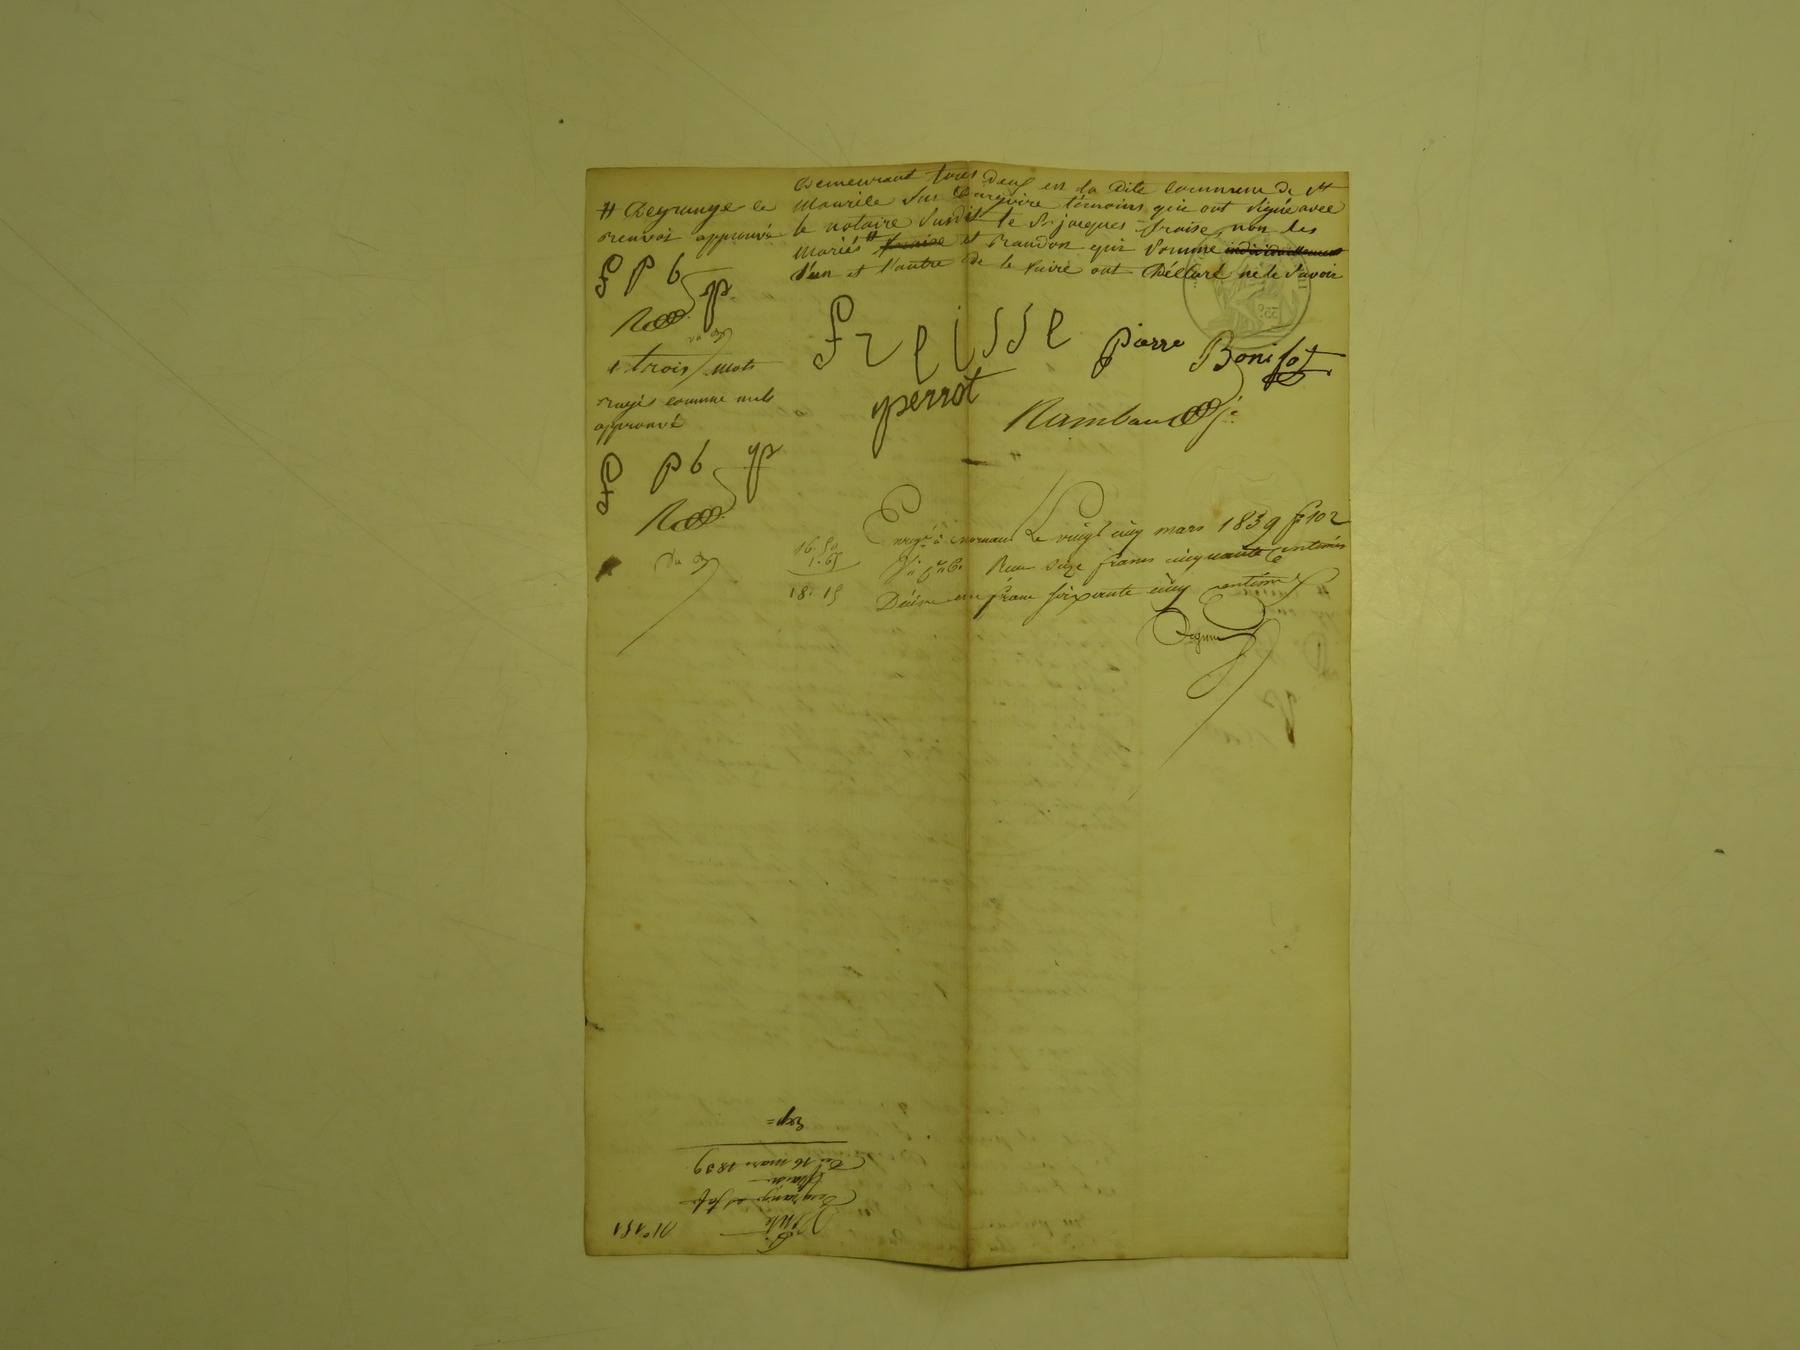 demeurant tous deux en la dite commune de St
Maurice sur Dargoire témoins qui ont signé avec
le notaire susdit le Sr jacques fraise, non les
Mariés # fraise et Brandon qui Sommé individuellement
L'un et l'autre de le faire ont déclaré ne le Savoir
# Degrange le
renvoi approuvé
F P b yp
& trois mots
rayés comme nuls
approuvé
F P b yp
freisse pierre Bonifot
yperrot
Rambaud
Enregé à mornant Le vingt cinq mars 1839 fo 102
Reçu Seize francs cinquante centimes
Décime un franc soixante cinq centimes
16. 50
1. 65
18. 15
No 151
Vente
Degrange
fraise
Du 16 mars 1839
Exp=